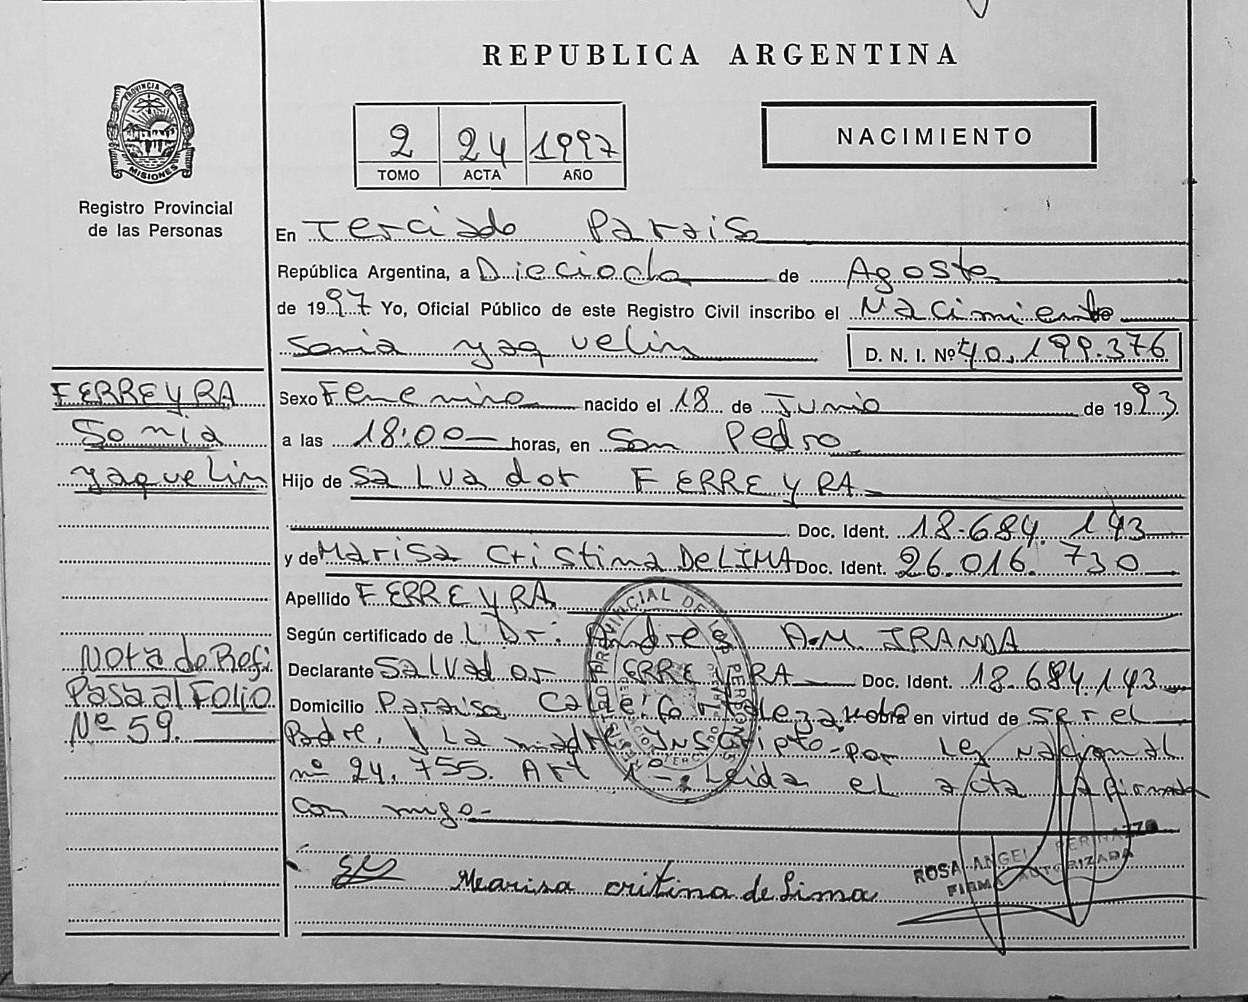 REPUBLICA ARGENTINA
PROVINCIA DE
MISIONES
Registro Provincial
de las Personas
2 24 1997
TOMO ACTA AÑO
NACIMIENTO
En Terciado Paraiso
República Argentina, a Dieciocho de Agosto
de 1997 Yo, Oficial Público de este Registro Civil inscribo el Nacimiento
Sonia Yaquelin D. N. I. Nº 40.199.376
FERREYRA
Sonia
Yaquelin
Sexo Femenino nacido el 18 de Junio de 1993
a las 18:00 horas, en San Pedro
Hijo de Salvador FERREYRA
Doc. Ident. 18.684.143
y de Marisa Cristina De LIMA Doc. Ident. 26.016.730
Apellido FERREYRA
Según certificado de L Dr. Andres A.M. IRANDA
Nota de Ref.
Pasa al Folio
Nº 59.
Declarante Salvador FERREYRA Doc. Ident. 18.684.143
Domicilio Paraiso en virtud de ser el
Padre, y La madre Inscripto por Ley Nacional
nº 24.755. Art 1º - Leida el acta la firmada
con migo-
Marisa critina de Lima
ROSA ANGEL PERINAZZO
FIRMA AUTORIZADA